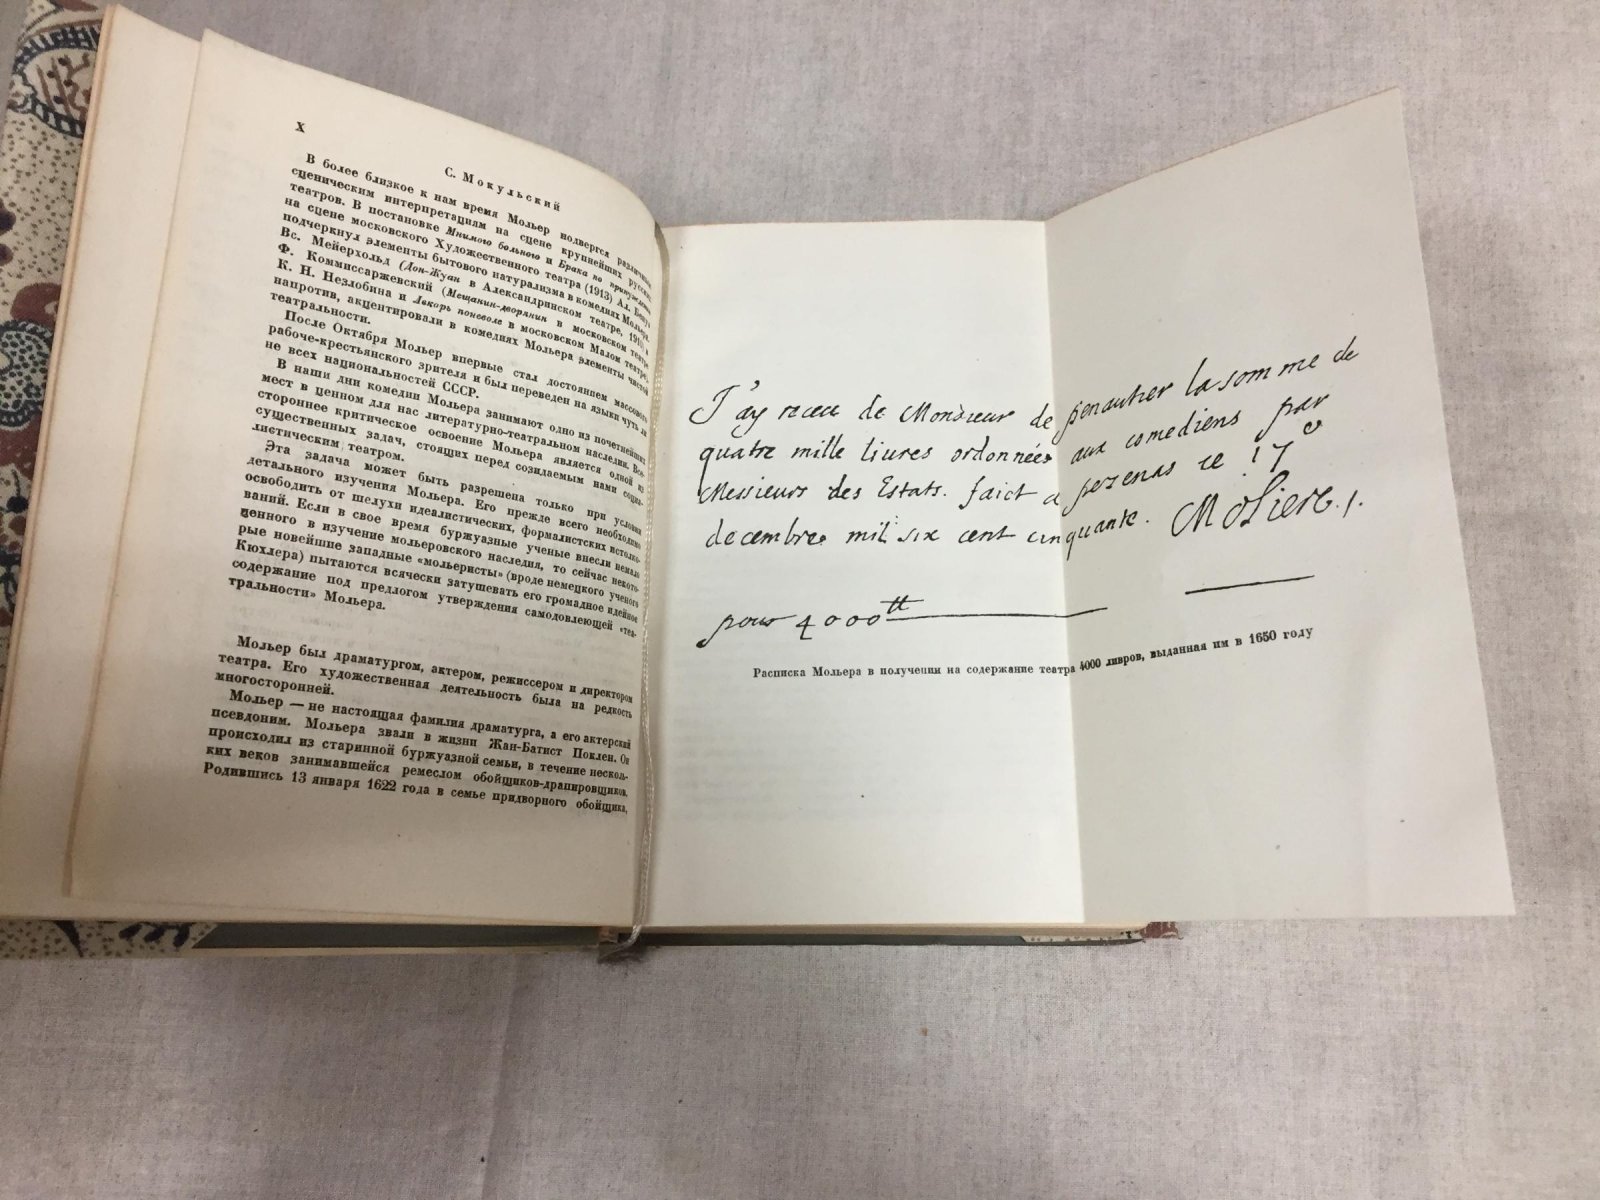 X
С. Мокульский
В более близкое к нам время Мольер подвергся различным
сценическим интерпретациям на сцене крупнейших русских
театров. В постановке Мнимого больного и Брака по принуждению
на сцене московского Художественного театра (1913) Ал. Бенуа
подчеркнул элементы бытового натурализма в комедиях Мольера.
Вс. Мейерхольд (Дон-Жуан в Александринском театре, 1910) и
Ф. Коммиссаржевский (Мещанин-дворянин в московском театре
К. Н. Незлобина и Лекарь поневоле в московском Малом театре,
напротив, акцентировали в комедиях Мольера элементы чистой
театральности.
После Октября Мольер впервые стал достоянием массового
рабоче-крестьянского зрителя и был переведен на языки чуть ли
не всех национальностей СССР.
В наши дни комедии Мольера занимают одно из почетнейших
мест в ценном для нас литературно-театральном наследии. Все-
стороннее критическое освоение Мольера является одной из
существенных задач, стоящих перед созидаемым нами социа-
листическим театром.
Эта задача может быть разрешена только при условии
детального изучения Мольера. Его прежде всего необходимо
освободить от шелухи идеалистических, формалистских истолко-
ваний. Если в свое время буржуазные ученые внесли немало
ценного в изучение мольеровского наследия, то сейчас некото-
рые новейшие западные «мольеристы» (вроде немецкого ученого
Кюхлера) пытаются всячески затушевать его громадное идейное
содержание под предлогом утверждения самодовлеющей «теа-
тральности» Мольера.
Мольер был драматургом, актером, режиссером и директором
театра. Его художественная деятельность была на редкость
многосторонней.
Мольер — не настоящая фамилия драматурга, а его актерский
псевдоним. Мольера звали в жизни Жан-Батист Поклен. Он
происходил из старинной буржуазной семьи, в течение несколь-
ких веков занимавшейся ремеслом обойщиков-драпировщиков.
Родившись 13 января 1622 года в семье придворного обойщика,
J'ay receu de Monsieur de penautier la somme de
quatre mille liures ordonnées aux comediens par
Messieurs des Estats. faict a pezenas ce 17
decembre mil six cent cinquante. Moliere.
pour 4000tt
Расписка Мольера в получении на содержание театра 4000 ливров, выданная им в 1650 году